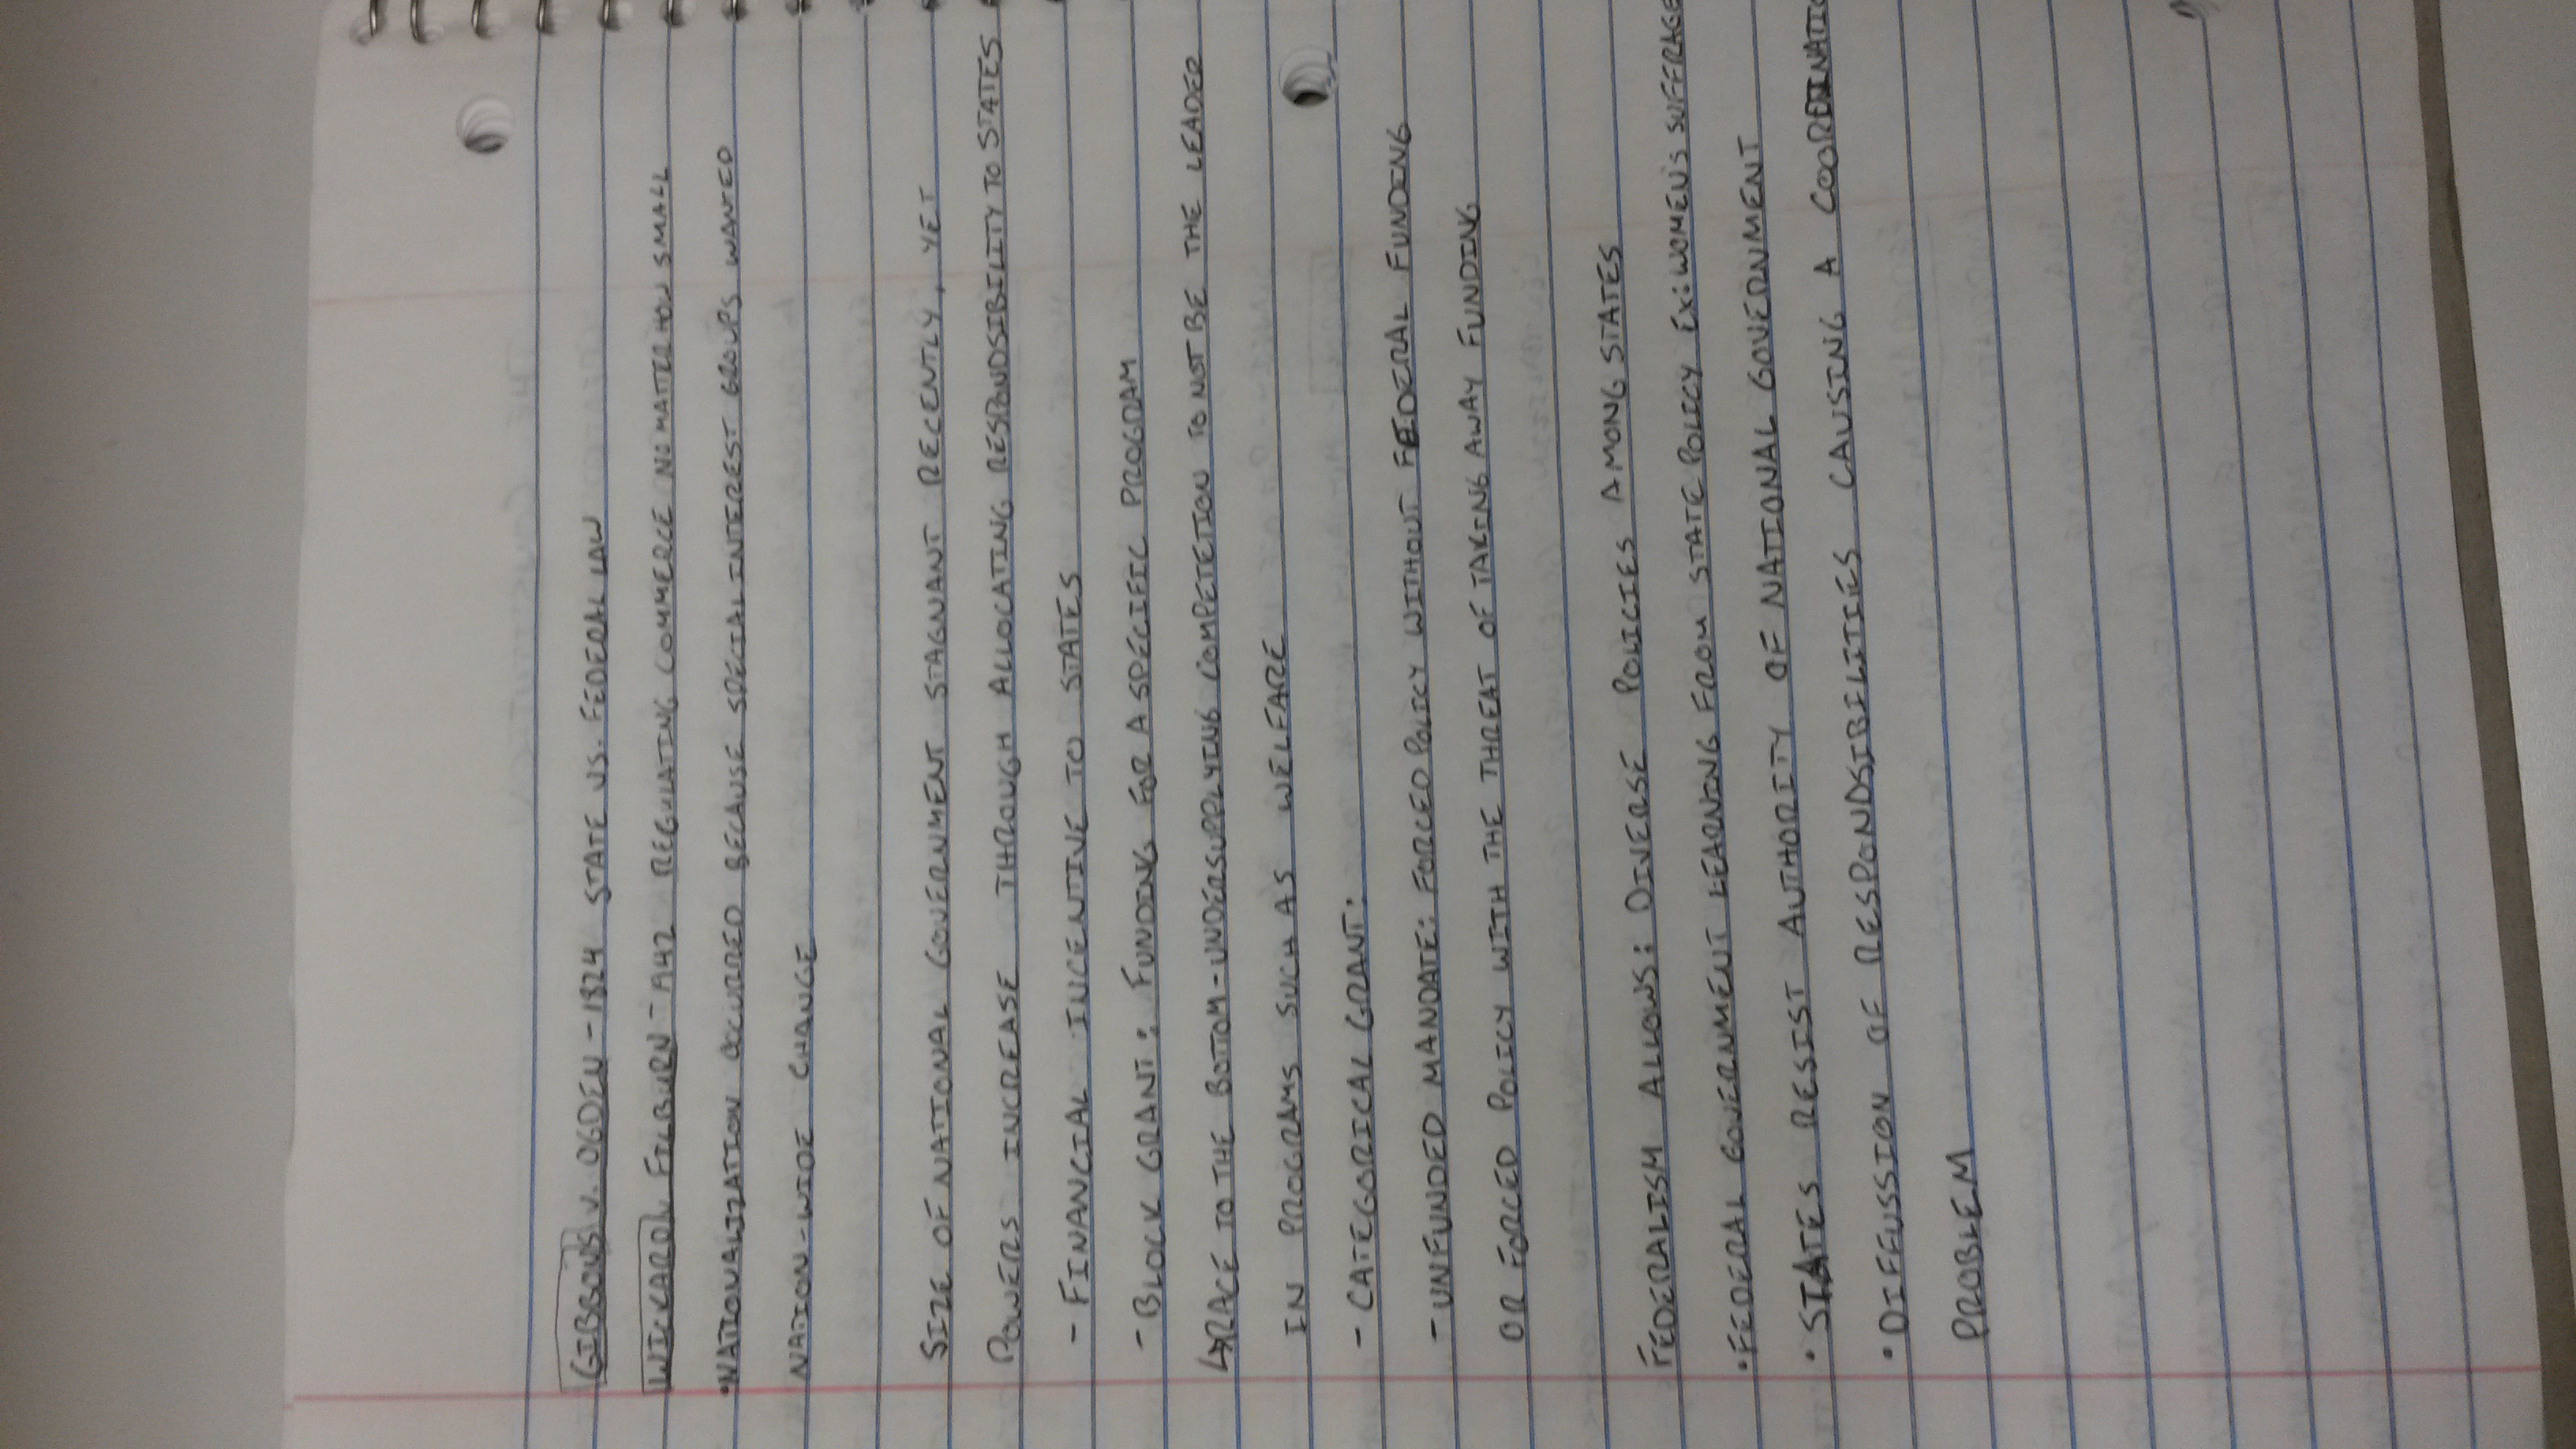 GIBBONS V. OGDEN - 1824 STATE VS. FEDERAL LAW
WICKARD V. FILBURN - 1942 REGULATING COMMERCE NO MATTER HOW SMALL
• NATIONALIZATION OCCURRED BECAUSE SPECIAL INTEREST GROUPS WANTED
NATION-WIDE CHANGE
SIZE OF NATIONAL GOVERNMENT STAGNANT RECENTLY, YET
POWERS INCREASE THROUGH ALLOCATING RESPONDSIBILITY TO STATES
- FINANCIAL INCENTIVE TO STATES
- BLOCK GRANT: FUNDING FOR A SPECIFIC PROGRAM
↳ RACE TO THE BOTTOM - UNDERSUPPLYING COMPETETION TO NOT BE THE LEADER
IN PROGRAMS SUCH AS WELFARE
- CATEGORICAL GRANT:
- UNFUNDED MANDATE: FORCED POLICY WITHOUT FEDERAL FUNDING
OR FORCED POLICY WITH THE THREAT OF TAKING AWAY FUNDING
FEDERALISM ALLOWS: DIVERSE POLICIES AMONG STATES
• FEDERAL GOVERNMENT LEARNING FROM STATE POLICY EX: WOMEN'S SUFFRAGE
• STATES RESIST AUTHORITY OF NATIONAL GOVERNMENT
• DIFFUSSION OF RESPONDSIBILITIES CAUSING A COORDINATIO
PROBLEM